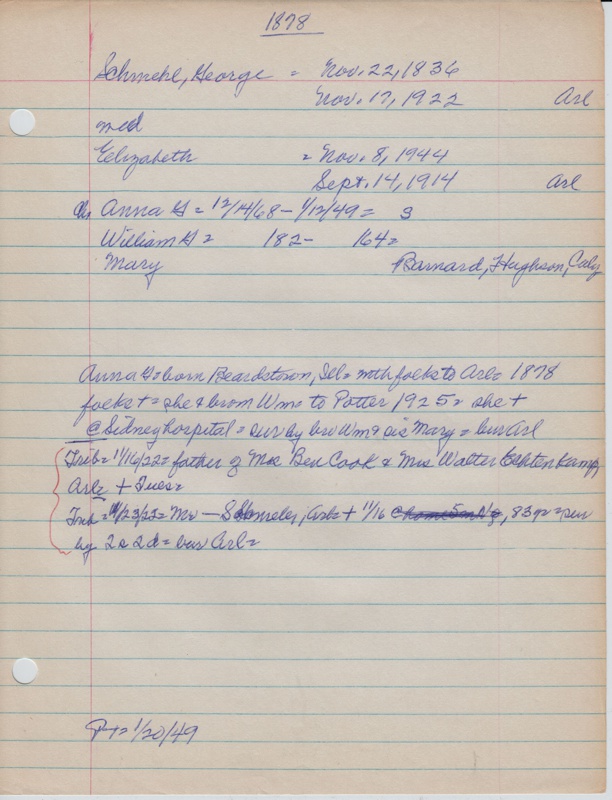 1878
Schmehl, George = Nov. 22, 1836
Nov. 17, 1922 Arl
med
Elizabeth = Nov. 8, 1944
Sept. 14, 1914 Arl
Ch Anna G = 12/14/68 - 1/12/49 = S
William G = 182- 164=
Mary Barnard, Hughson, Caly
Anna G = born Beardstown, Ill = with folks to Arl = 1878
folks + = she & bro Wm = to Potter 1925 = she +
@ Sidney hospital = sur by bro Wm & sis Mary = bur Arl
Trib = 11/16/22 = father of Mrs Ben Cook & Mrs Walter Echtenkamp,
Arl = + Tues =
Trib = 11/23/22 = Mr - S, Arl = + 11/16, 83 yr = sur
by 2s 2d = bur Arl =
P-T = 1/20/49